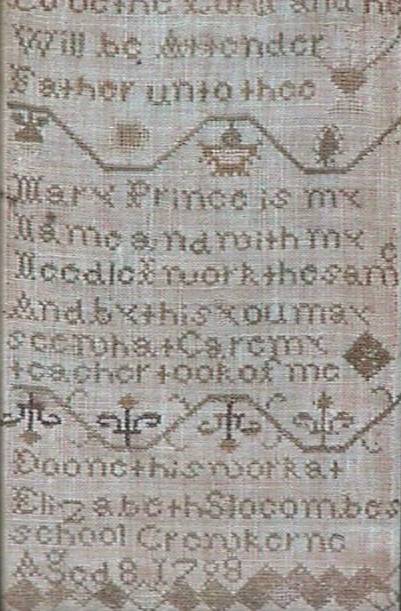 the Lord and
Will be Attender
Father unto thee
Mary Prince is my
Name and with my
Needle I work the same
And by this you may
see what Care my
teacher took of me
Doone this work at
Elizabeth Slocombes
school Crewkerne
Aged 8 1788